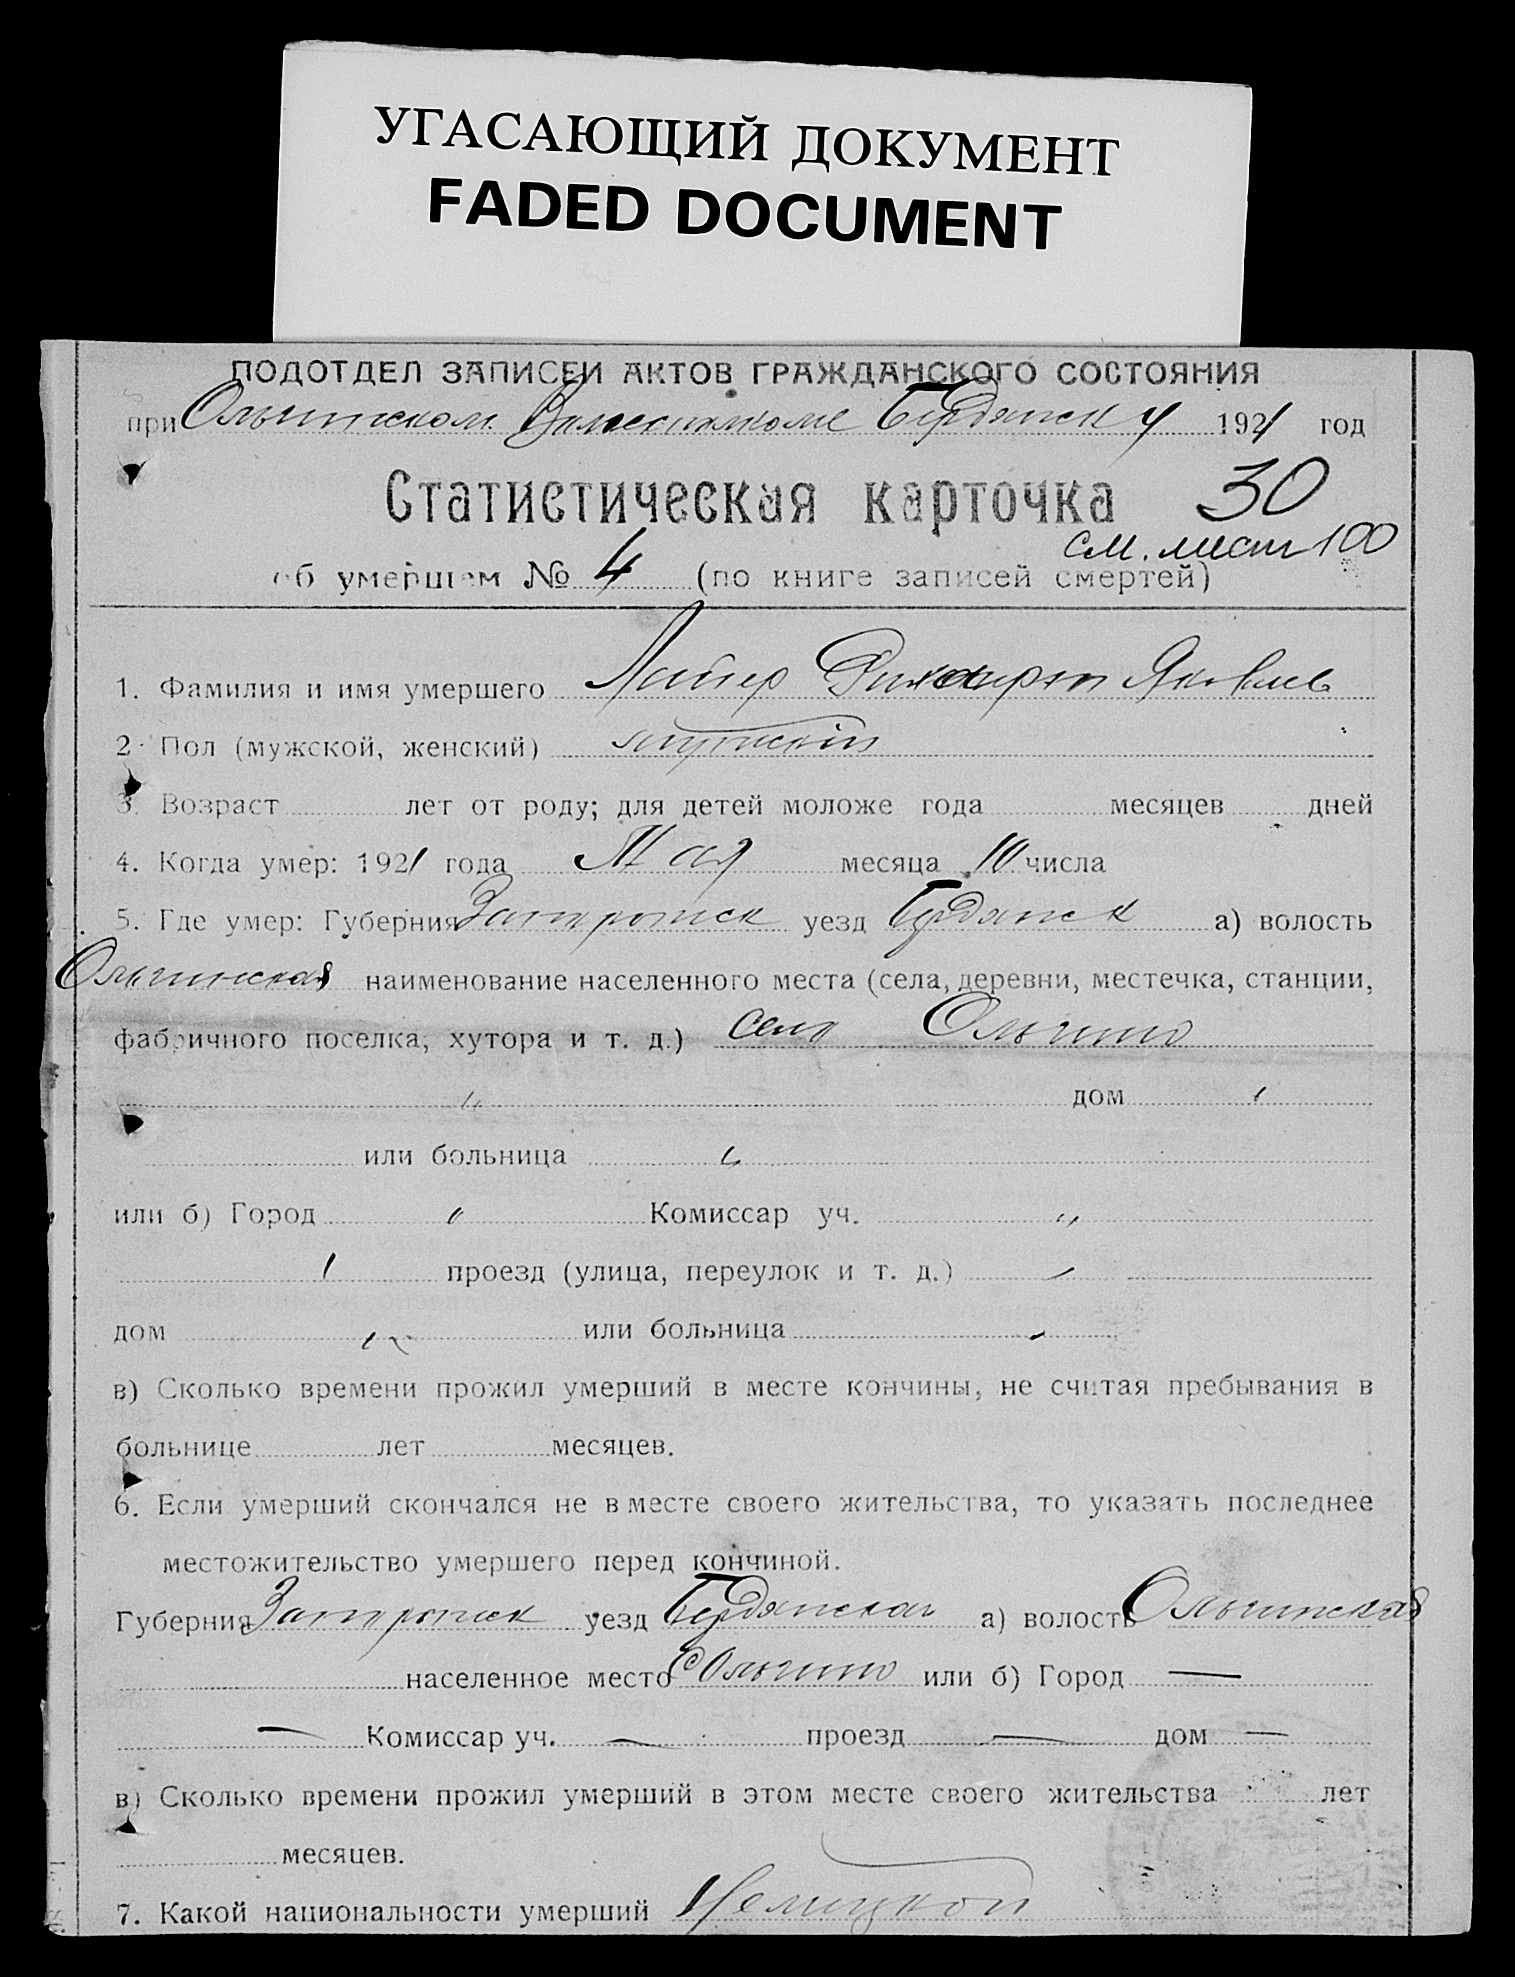 УГАСАЮЩИЙ ДОКУМЕНТ
FADED DOCUMENT
ПОДОТДЕЛ ЗАПИСЕЙ АКТОВ ГРАЖДАНСКОГО СОСТОЯНИЯ
при Ольгинском Волисполкоме Бердянск у 1921 год
Статистическая карточка 30
см. лист 100
об умершем № 4 (по книге записей смертей)
1. Фамилия и имя умершего Яковлев
2. Пол (мужской, женский) мужской
3. Возраст лет от роду; для детей моложе года месяцев дней
4. Когда умер: 1921 года Мая месяца 10 числа
5. Где умер: Губерния Запорожск уезд Бердянск а) волость
Ольгинская наименование населенного места (села, деревни, местечка, станции,
фабричного поселка, хутора и т. д.) село Ольгино
" дом "
или больница "
или б) Город " Комиссар уч. "
" проезд (улица, переулок и т. д.) "
дом " или больница "
в) Сколько времени прожил умерший в месте кончины, не считая пребывания в
больнице лет месяцев.
6. Если умерший скончался не в месте своего жительства, то указать последнее
местожительство умершего перед кончиной.
Губерния Запорожск уезд Бердянская а) волость Ольгинская
населенное место с Ольгино или б) Город —
— Комиссар уч. — проезд — дом —
в) Сколько времени прожил умерший в этом месте своего жительства лет
месяцев.
7. Какой национальности умерший Немецкой